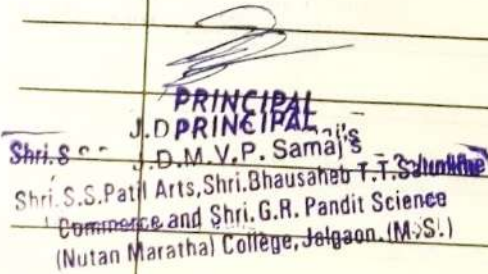 PRINCIPAL
J.D PRINCIPAL 's
Shri. S J.D.M.V.P. Samaj's
Shri. S.S. Patil Arts, Shri. Bhausaheb T.T. Salunkhe
Commerce and Shri. G.R. Pandit Science
(Nutan Maratha) College, Jalgaon. (M.S.)